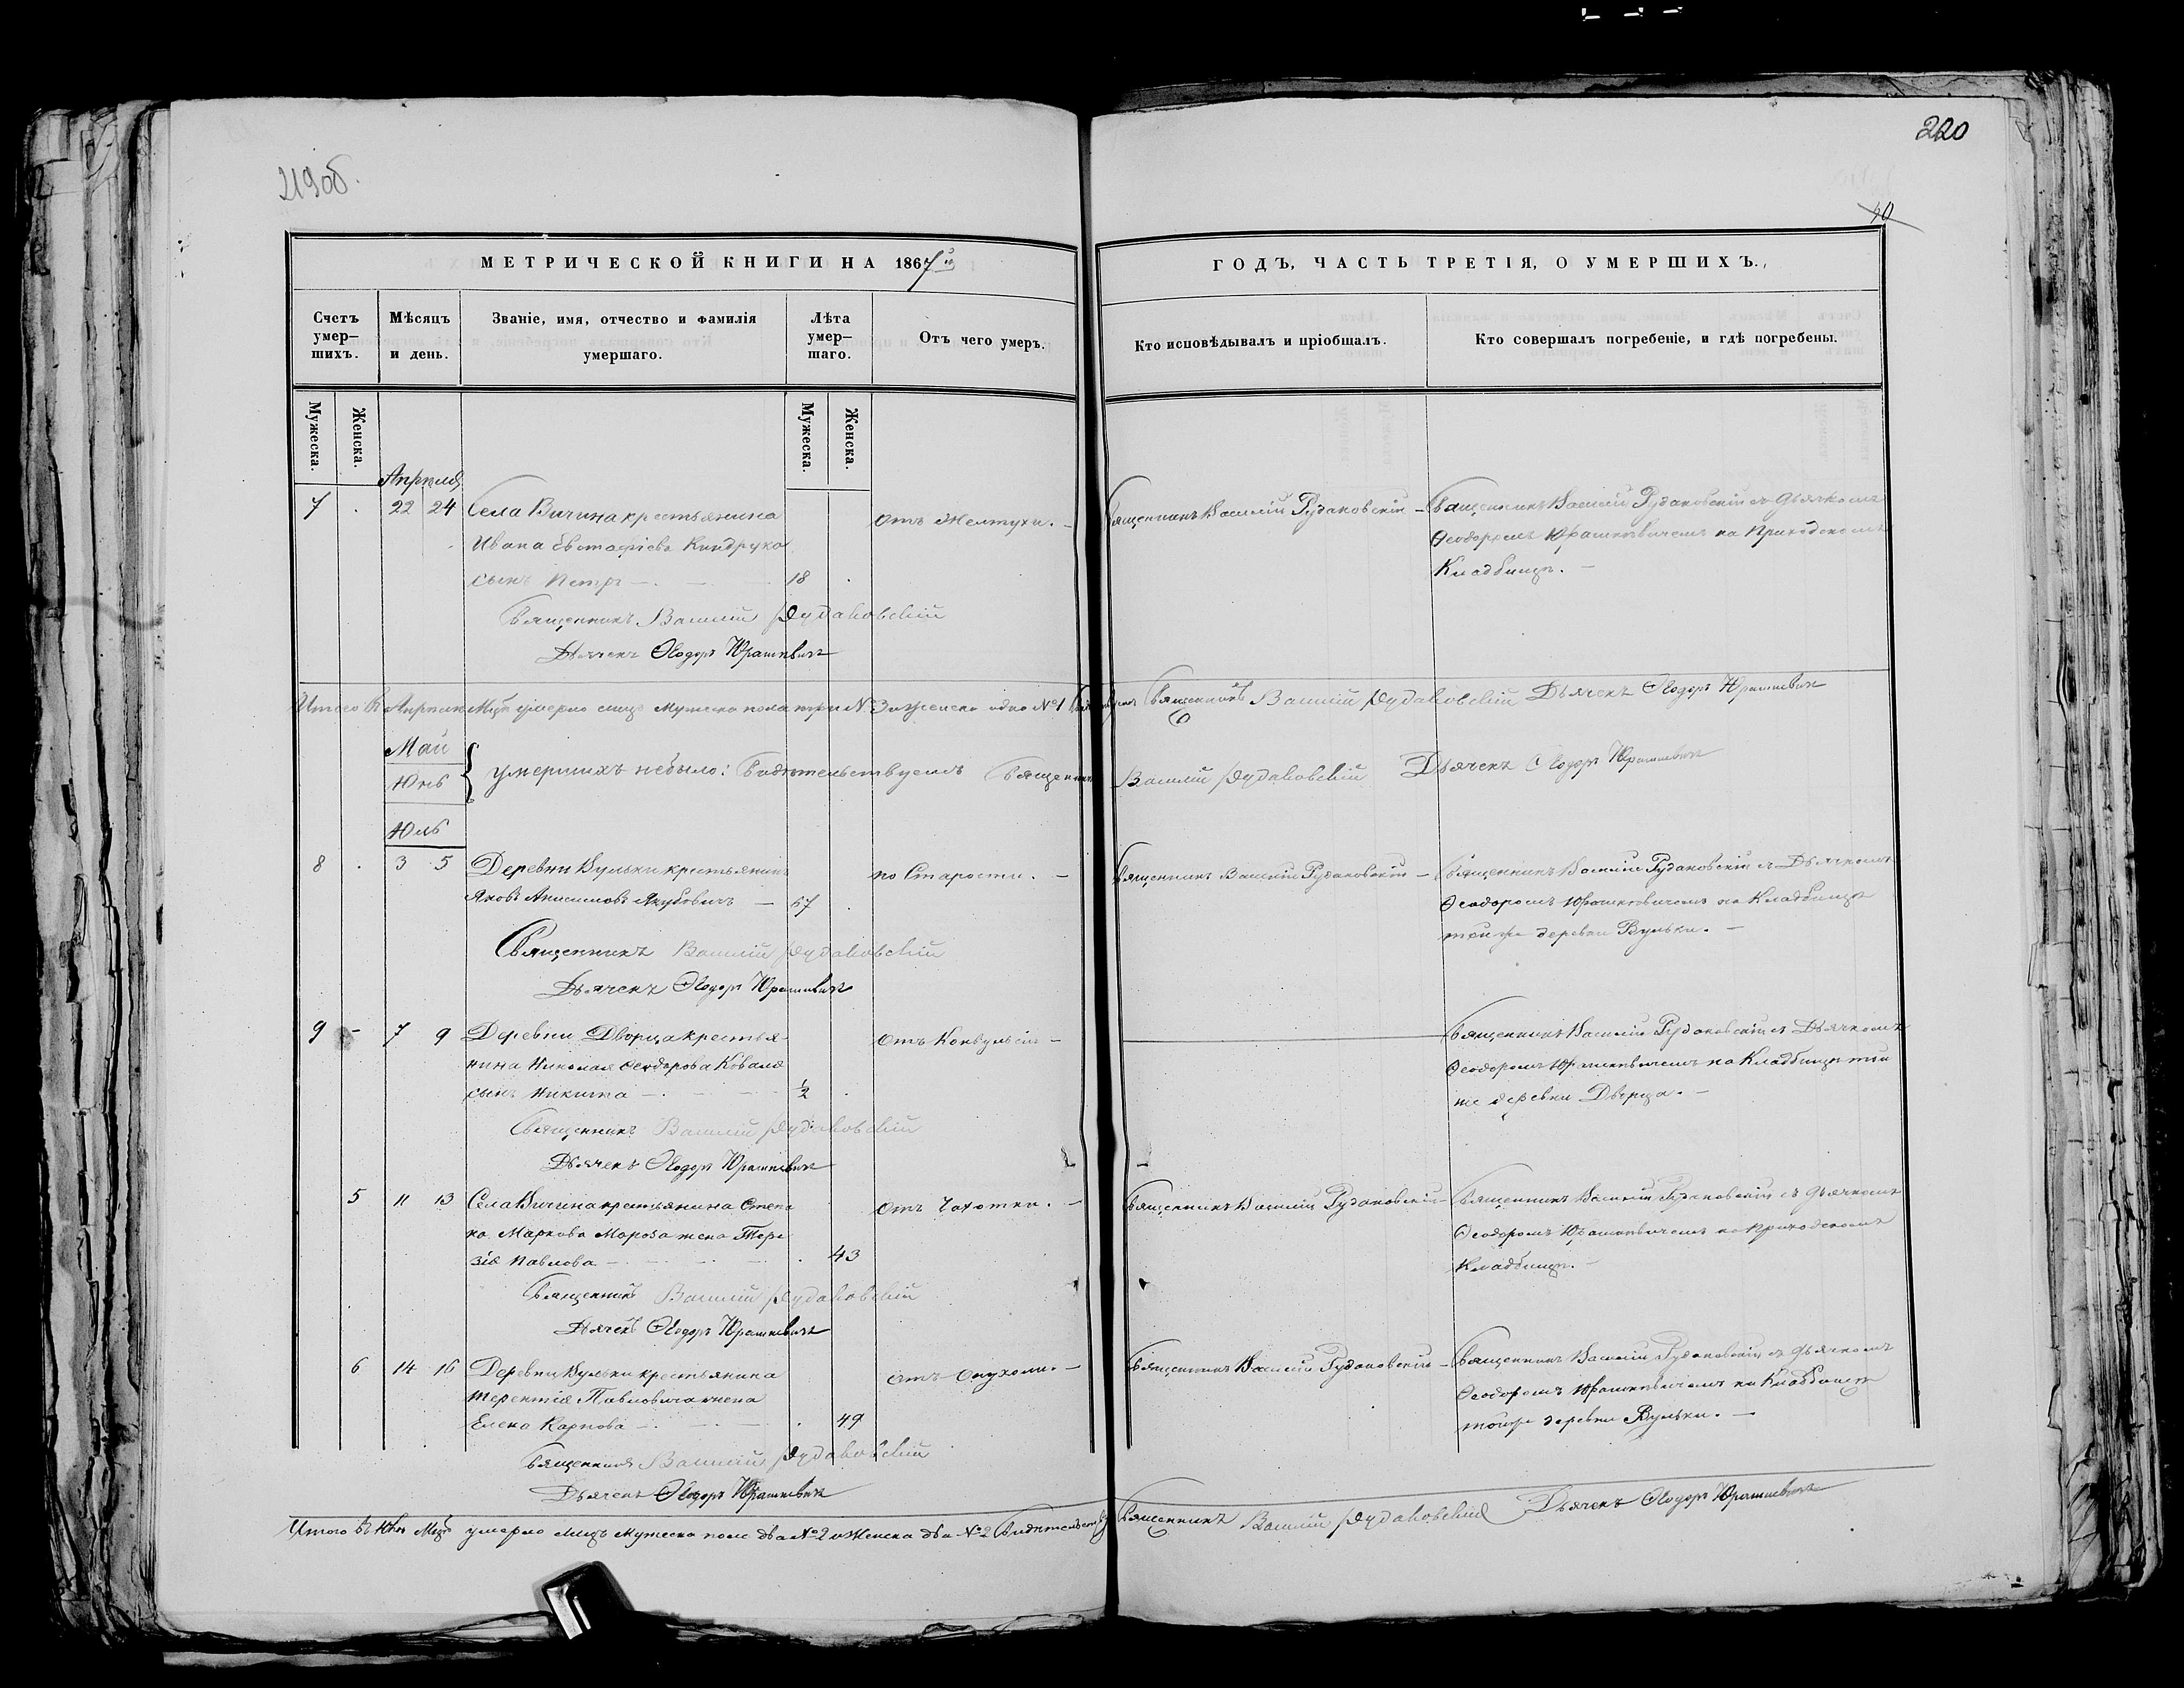 219об.
220
40
МЕТРИЧЕСКОЙ КНИГИ НА 1867й
ГОДЪ, ЧАСТЬ ТРЕТІЯ, О УМЕРШИХЪ.
Счетъ умер—шихъ.
Мѣсяцъ и день.
Званіе, имя, отчество и фамилія умершаго.
Лѣта умер—шаго.
Отъ чего умеръ.
Кто исповѣдывалъ и пріобщалъ.
Кто совершалъ погребеніе, и гдѣ погребены.
Мужеска.
Женска.
Мужеска.
Женска.
Апрѣля
7 . 22 24 Села Вичина крестьянина
Ивана Евстафіева Киндрука
сынъ Петръ — 18 .
отъ Желтухи. —
Священникъ Василій Рудаковскій —
Священникъ Василій Рудаковскій съ Дьячкомъ
Ѳеодоромъ Юрашкевичемъ на Приходскомъ
Кладбищѣ. —
Священникъ Василій Рудаковскій
Дьячекъ Ѳеодоръ Юрашкевичъ
Итого въ Апрѣлѣ Мцѣ умерло лицъ Мужеска пола три №3 и Женска одно №1 Священникъ Василій Рудаковскій Дьячекъ Ѳеодоръ Юрашкевичъ
Май
Юнь
умершихъ небыло: Свидѣтельствуемъ Священникъ Василій Рудаковскій Дьячекъ Ѳеодоръ Юрашкевичъ
Юль
8 . 3 5 Деревни Вульки крестьянинъ
Яковъ Анисимовъ Якубовичъ — 67 .
по Старости. —
Священникъ Василій Рудаковскій —
Священникъ Василій Рудаковскій съ Дьячкомъ
Ѳеодоромъ Юрашкевичемъ на Кладбищѣ
тойже деревни Вульки. —
Священникъ Василій Рудаковскій
Дьячекъ Ѳеодоръ Юрашкевичъ
9 - 7 9 Деревни Дворца крестья-
нина Николая Ѳеодорова Коваля
сынъ Никита — 1/2 .
отъ Конвульсіи —
Священникъ Василій Рудаковскій съ Дьячкомъ
Ѳеодоромъ Юрашкевичемъ на Кладбищѣ той
же деревни Дворца. —
Священникъ Василій Рудаковскій
Дьячекъ Ѳеодоръ Юрашкевичъ
5 11 13 Села Вичина крестьянина Степа
на Маркова Мороза жена Тере
зія Павлова — . 43
отъ Чахотки. —
Священникъ Василій Рудаковскій —
Священникъ Василій Рудаковскій съ Дьячкомъ
Ѳеодоромъ Юрашкевичемъ на Приходскомъ
Кладбищѣ. —
Священникъ Василій Рудаковскій
Дьячекъ Ѳеодоръ Юрашкевичъ
6 14 16 Деревни Вульки крестьянина
Терентія Павловича жена
Елена Карпова — . 49
отъ Опухоли. —
Священникъ Василій Рудаковскій —
Священникъ Василій Рудаковскій съ Дьячкомъ
Ѳеодоромъ Юрашкевичемъ на Кладбищѣ
тойже деревни Вульки. —
Священникъ Василій Рудаковскій
Дьячекъ Ѳеодоръ Юрашкевичъ
Итого въ Юлѣ Мцѣ умерло лицъ Мужеска пола два №2 и Женска два №2 Священникъ Василій Рудаковскій Дьячекъ Ѳеодоръ Юрашкевичъ